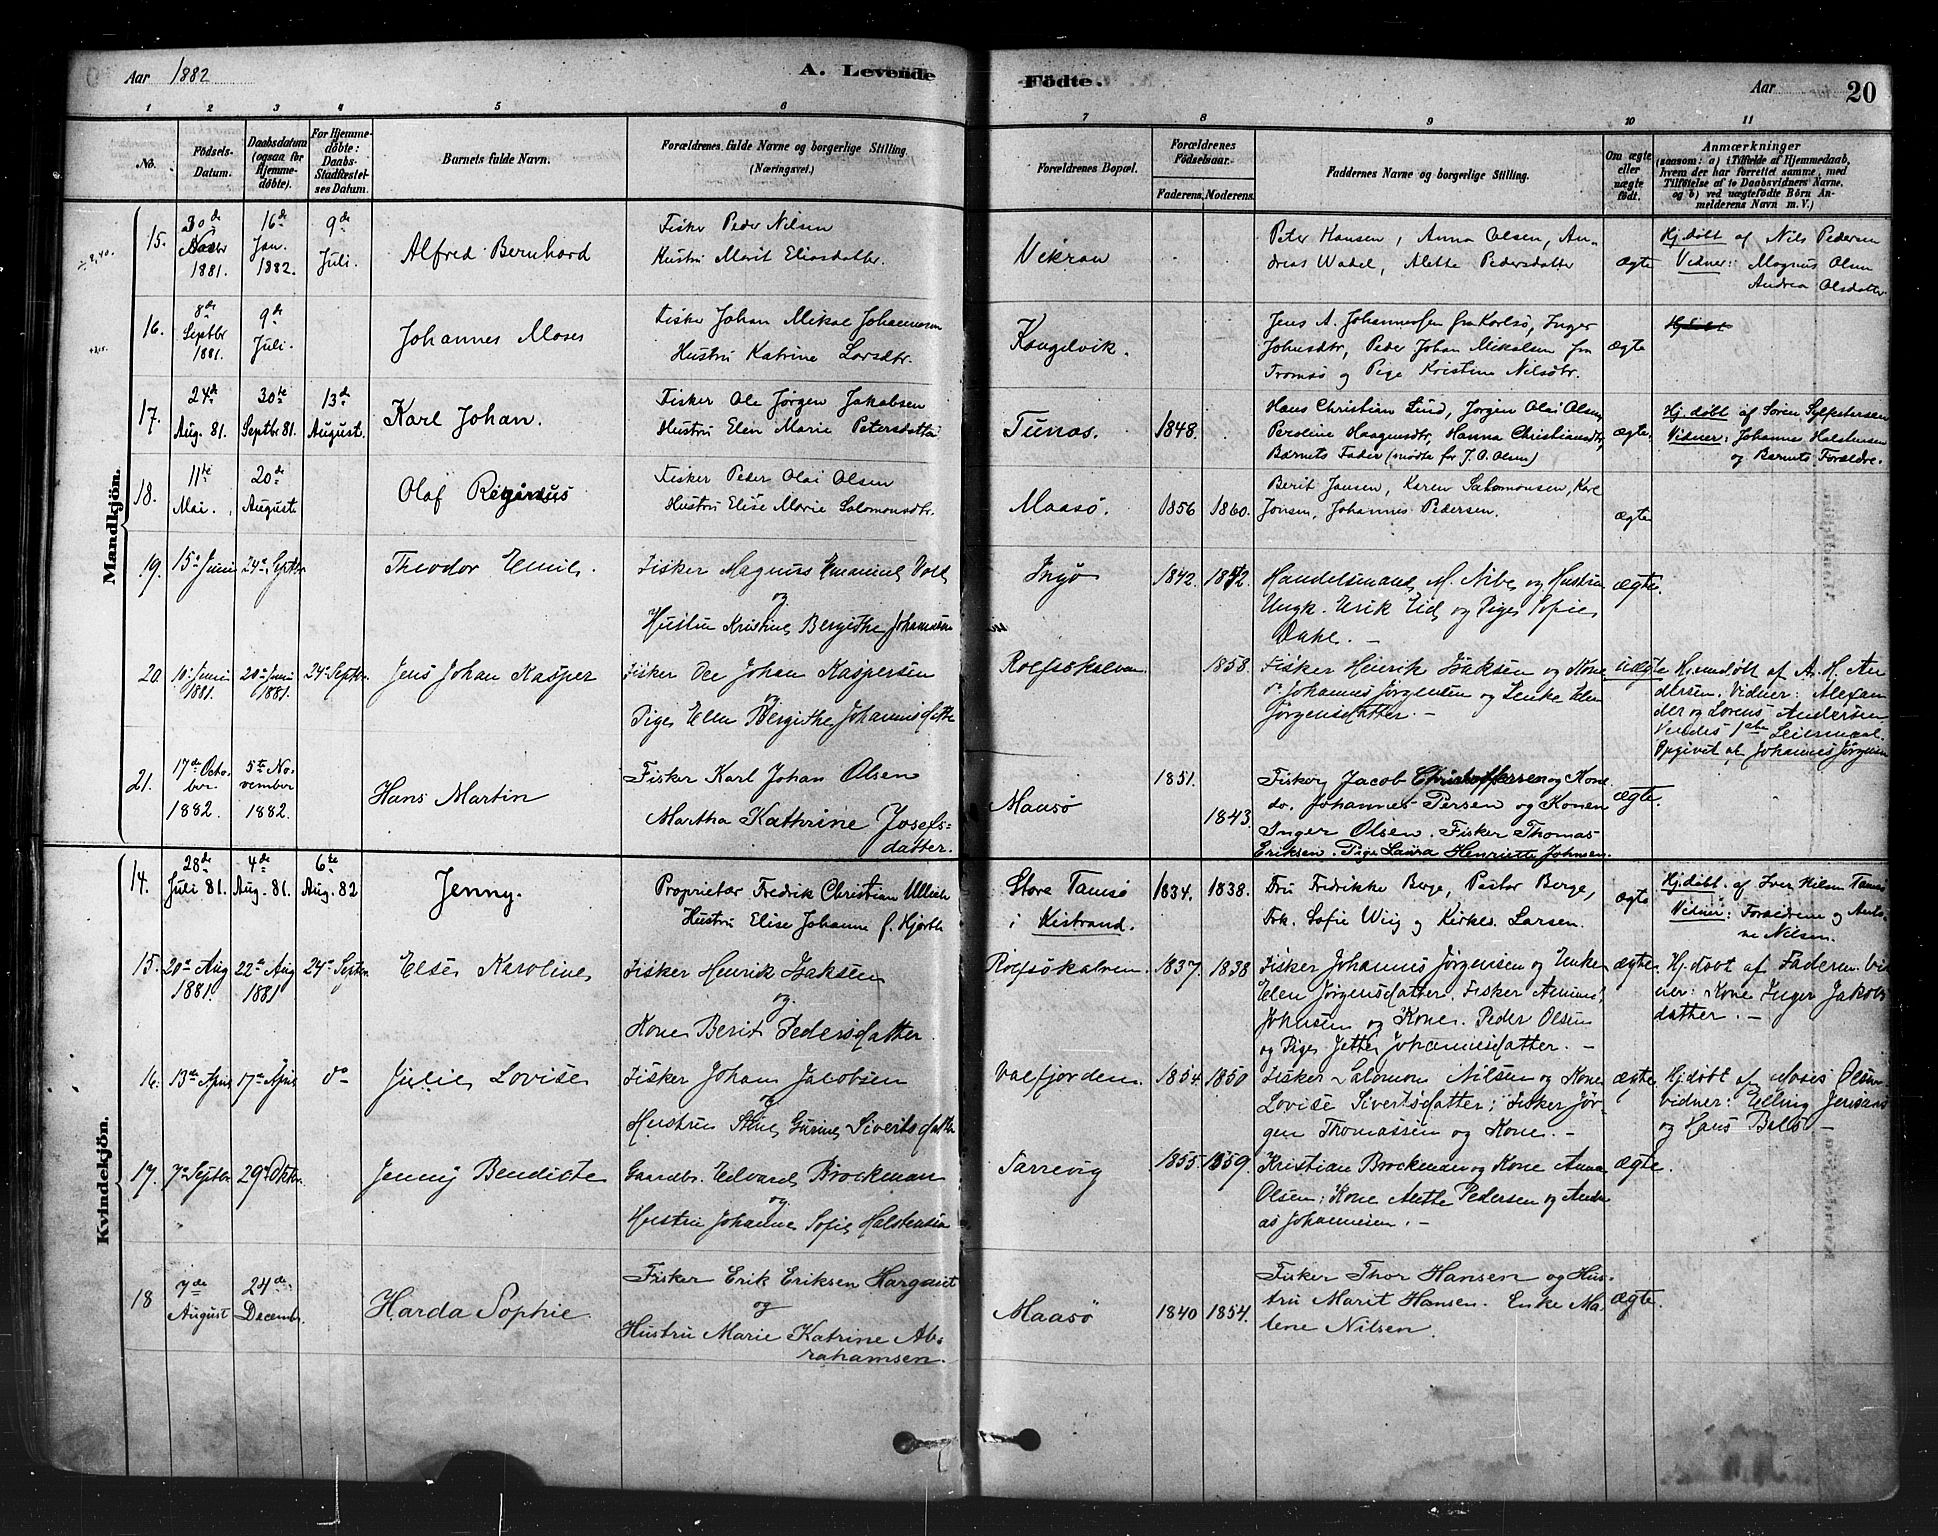 Aar 1882
A. Levende
Födte.
Aar
20
1 2 3 4 5 6 7 8 9 10 11
No.
Födsels-
Datum.
Daabsdatum
(ogsaa for
Hjemme-
döbte).
For Hjemme-
döbte:
Daabs-
Stadfæstel-
ses Datum.
Barnets fulde Navn.
Forældrenes fulde Navne og borgerlige Stilling
(Næringsvei.)
Forældrenes Bopæl.
Forældrenes
Födselsaar.
Faderens. Moderens.
Faddernes Navne og borgerlige Stilling.
Om ægte
eller
uægte
födt.
Anmærkninger
(saasom: a) i Tilfælde af Hjemmedaab,
hvem der har forrettet samme, med
Tilföielse af to Daabsvidners Navne,
og b) ved uægtefödte Börn An-
melderens Navn m. V.)
Mandkjön.
15. 30de 1881. 16de Jan. 1882. 9de Juli.
Alfred Bernhard
Fisker Peder Nilsen
Hustru Marit Eliasdatter.
Vikran
Peter Hansen, Anna Olsen, An-
dreas Wadel, Alette Pedersdatter
ægte
Hj.døbt af Nils Pedersen
Vidner: Magnus Olsen
Andrea Olsdatter
16. 8de Septbr 1881. 9de Juli.
Johannes Moses
Fisker Johan Mikal Johannesen
Hustru Katrine Larsdtr.
Kongelvik.
Jens A. Johannesen fra Karlsø, Inger
Johnsdtr, Peder Johan Mikalsen fra
Tromsø og Pige Kristine Nilsdtr.
ægte
17. 24de Aug. 81. 30te Septbr 81. 13de August.
Karl Johan.
Fisker Ole Jørgen Jakobsen
Hustru Elen Marie Petersdatter
Tunes.
1848.
Hans Christian Lund, Jørgen Olai Olsen,
Peroline Haagensdtr, Hanna Christiansdtr,
Barnets Fader (mødte for J. O. Olsen)
ægte.
Hj.døbt af Søren Sylfestersen
Vidner: Johannes Halstensen
og Barnets Forældre.
18. 11te Mai. 20de Auguste
Olaf
Fisker Peder Olai Olsen
Hustru Elise Marie Salomonsdtr.
Maasø.
1856 1860.
Berit Jansen, Karen Salomonsen, Karl
Jonsen, Johannes Pedersen.
ægte
19. 15de Juni 24de Septbr
Theodor Emil.
Fisker Magnus Emanuel Vold
og
Hustru Kristine Bergithe Johannesen
Ingø
1842. 1842.
Handelsmand M. Nibe og Hustru
Ungk. Erik Eid og Pige Sofie
Dahl.
ægte.
20. 10de Juni 1881. 20de Juni 1881. 24de Septbr.
Jens Johan Kasper
Fisker Ole Johan Kaspersen
og
Pige Elen Bergithe Johannesdatter
Rolfsøhalven
1858.
Fisker Henrik Isaksen og Kone
do Johannes Jørgensen og Enke Elen
Jørgensdatter.
uægte
Hjemmdøbt af A. H. An
dersen. Vidner: Alexan
der og Lorens Andersen
Leiermaal.
Opgivet af Johannes Jørgensen
21. 17de Octo-
ber 1882 5te No-
vember 1882.
Hans Martin
Fisker Karl Johan Olsen
Martha Kathrine Josefs-
datter.
Maasø
1851. 1843.
Fisker Jacob Christoffersen og Kone
do. Johannes Persen og Konen
Inger Olsen. Fisker Thomas
Eriksen. Pige Laura Henriette Johnsen.
ægte.
Kvindekjön.
14. 28de Juli 81. 4de Aug. 81. 6te Aug. 82
Jenny.
Proprietær Fredrik Christian Ulich
Hustru Elise Johanne f. Hjorth
Store Tamsø
i Kistrand.
1834. 1838.
Fru Fredrikke Berge, Pastor Berge,
Frk. Sofie Wiig og Kirkes. Larsen.
ægte
Hj.døbt. af Iver Nilsen Tamsø
Vidner: Forældrene og Anto-
ne Nilsen.
15. 20de Aug 1881. 22de Aug 1881 24de Septbr
Else Karoline
Fisker Henrik Isaksen
og
Kone Berit Pedersdatter.
Rolfsøhalven
1837. 1838
Fisker Johannes Jørgensen og Enke
Elen Jørgensdatter. Fisker
Johnsen og Kone. Peder Olsen
og Pige Jette Johannesdatter.
ægte.
Hj.døbt af Faderen. Vid
ner: Kone Inger Jakobs
datter.
16. 13de April 17de April do
Julie Lovise
Fisker Johan Jacobsen
og
Hustru Stine Gurine Sivertsdatter
1854 1850
Fisker Salomon Nilsen og Kone
Lovise Sivertsdatter; Fisker Jør-
gen Thomassen og Kone.
ægte.
Hj.døbt af Moses Olsen
Vidner: Elling
og Hans
17. 7de Septbr 29de Oktbr.
Jenny Bendicte
Gaardbr. Edvard Brockman
og
Hustru Johanne Sofie Halstensen
Sarrevig
1855. 1859.
Kristian Brockman og Kone Anna
Olsen; Kone Anette Pedersen og Andre
as Johannesen.
ægte.
18 7de August 24de Decembr.
Harda Sophie.
Fisker Erik Eriksen Hargaut
og
Hustru Marie Katrine Ab-
rahamsen.
Maasø
1840 1854.
Fisker Thor Hansen og Hus-
tru Marit Hansen. Enke Ma-
lene Nilsen.
ægte.